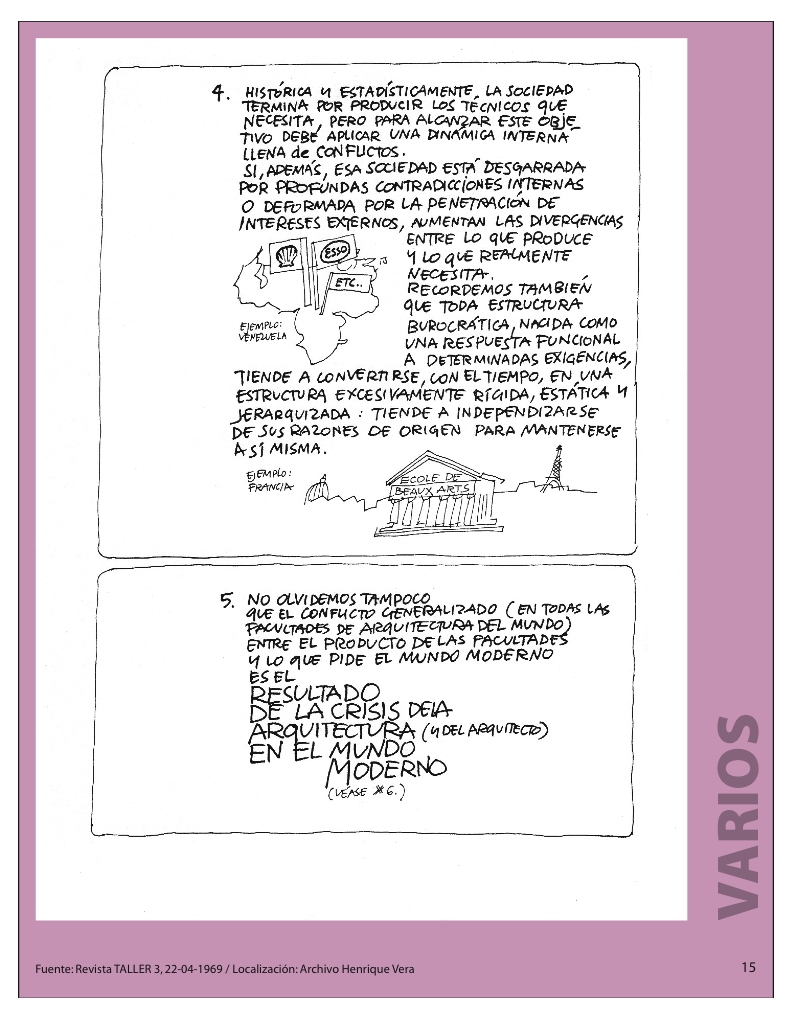 4. HISTÓRICA Y ESTADÍSTICAMENTE, LA SOCIEDAD
TERMINA POR PRODUCIR LOS TÉCNICOS QUE
NECESITA, PERO PARA ALCANZAR ESTE OBJE
TIVO DEBE APLICAR UNA DINÁMICA INTERNA
LLENA de CONFLICTOS.
SI, ADEMÁS, ESA SOCIEDAD ESTÁ DESGARRADA
POR PROFUNDAS CONTRADICCIONES INTERNAS
O DEFORMADA POR LA PENETRACIÓN DE
INTERESES EXTERNOS, AUMENTAN LAS DIVERGENCIAS
ENTRE LO QUE PRODUCE
Y LO QUE REALMENTE
NECESITA.
RECORDEMOS TAMBIÉN
QUE TODA ESTRUCTURA
BUROCRÁTICA, NACIDA COMO
UNA RESPUESTA FUNCIONAL
A DETERMINADAS EXIGENCIAS,
ESSO
ETC..
EJEMPLO:
VENEZUELA
TIENDE A CONVERTIRSE, CON EL TIEMPO, EN UNA
ESTRUCTURA EXCESIVAMENTE RÍGIDA, ESTÁTICA Y
JERARQUIZADA: TIENDE A INDEPENDIZARSE
DE SUS RAZONES DE ORIGEN PARA MANTENERSE
A SÍ MISMA.
EJEMPLO:
FRANCIA
ECOLE DE
BEAUX ARTS
5. NO OLVIDEMOS TAMPOCO
QUE EL CONFLICTO GENERALIZADO (EN TODAS LAS
FACULTADES DE ARQUITECTURA DEL MUNDO)
ENTRE EL PRODUCTO DE LAS FACULTADES
Y LO QUE PIDE EL MUNDO MODERNO
ES EL
RESULTADO
DE LA CRISIS DE LA
ARQUITECTURA (Y DEL ARQUITECTO)
EN EL MUNDO
MODERNO
(VÉASE #6.)
VARIOS
Fuente: Revista TALLER 3, 22-04-1969 / Localización: Archivo Henrique Vera
15